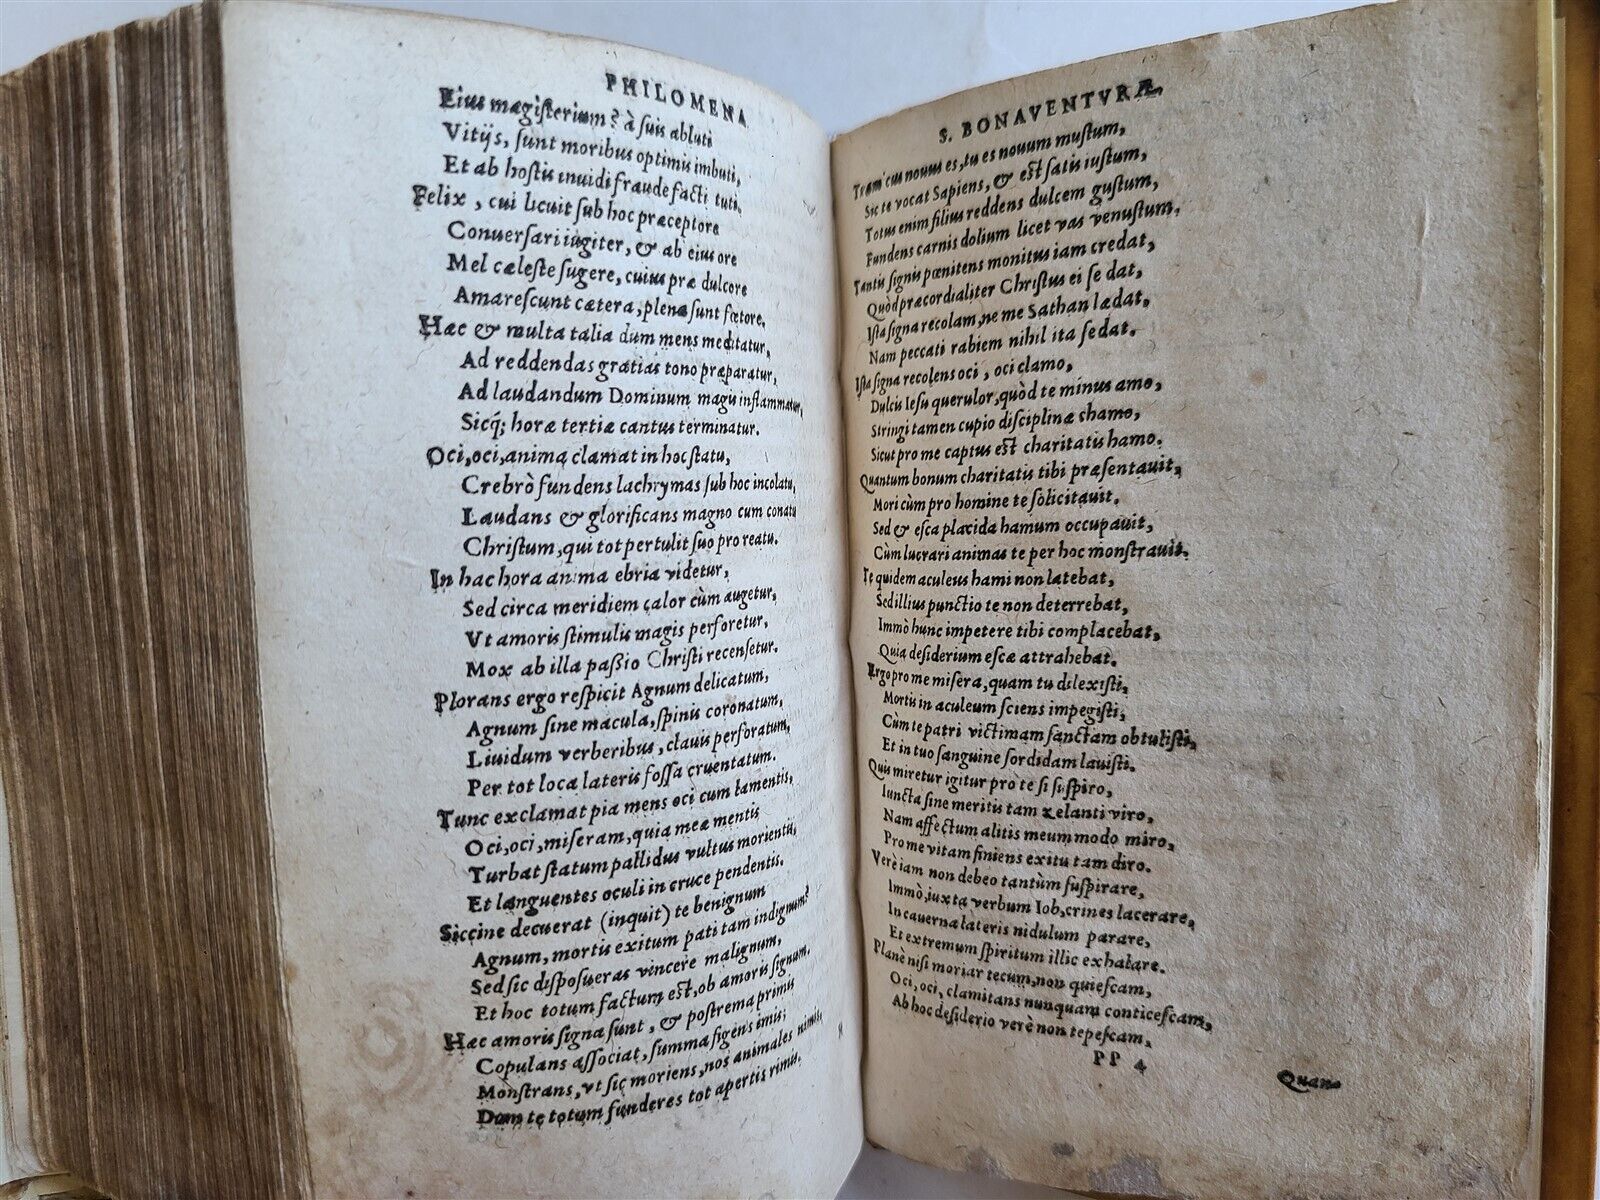 PHILOMENA
Eius magisterium? à suis abluti
Vitijs, sunt moribus optimis imbuti,
Et ab hostis inuidi fraude facti tuti.
Felix, cui licuit sub hoc præceptore
Conuersari iugiter, & ab eius ore
Mel cæleste sugere, cuius præ dulcore
Amarescunt cætera, plena sunt fœtore.
Hæc & multa talia dum mens meditatur,
Ad reddendas gratias tono præparatur,
Ad laudandum Dominum magis inflammatur,
Sicq; horæ tertiæ cantus terminatur.
Oci, oci, anima clamat in hoc statu,
Crebrò fundens lachrymas sub hoc incolatu,
Laudans & glorificans magno cum conatu
Christum, qui tot pertulit suo pro reatu.
In hac hora anima ebria videtur,
Sed circa meridiem calor cùm augetur,
Vt amoris stimulis magis perforetur,
Mox ab illa passio Christi recensetur.
Plorans ergo respicit Agnum delicatum,
Agnum sine macula, spinis coronatum,
Liuidum verberibus, clauis perforatum,
Per tot loca lateris fossa cruentatum.
Tunc exclamat pia mens oci cum lamentis,
Oci, oci, miseram, quia meæ mentis
Turbat statum pallidus vultus morientis,
Et languentes oculi in cruce pendentis.
Siccine decuerat (inquit) te benignum
Agnum, mortis exitum pati tam indignum?
Sed sic disposueras vincere malignum,
Et hoc totum factum est, ob amoris signum.
Hæc amoris signa sunt, & postrema primis
Copulans associat, summa figens imis;
Monstrans, vt sic moriens, nos animales nimis,
Dum te totum funderes tot apertis rimis.
S. BONAVENTVRÆ.
nouus es, tu es nouum mustum,
Sic te vocat Sapiens, & est satis iustum,
Totus enim filius reddens dulcem gustum,
Fundens carnis dolium licet vas venustum.
Tantis signis pœnitens monitus iam credat,
Quòd præcordialiter Christus ei se dat,
Ista signa recolam, ne me Sathan lædat,
Nam peccati rabiem nihil ita sedat.
Ista signa recolens oci, oci clamo,
Dulcis Iesu querulor, quòd te minus amo,
Stringi tamen cupio disciplinæ chamo,
Sicut pro me captus est charitatis hamo.
Quantum bonum charitatis tibi præsentauit,
Mori cùm pro homine te solicitauit.
Sed & esca placida hamum occupauit,
Cùm lucrari animas te per hoc monstrauit.
Te quidem aculeus hami non latebat,
Sed illius punctio te non deterrebat,
Immò hunc impetere tibi complacebat,
Quia desiderium escæ attrahebat.
Ergo pro me misera, quam tu dilexisti,
Mortis in aculeum sciens impegisti,
Cùm te patri victimam sanctam obtulisti,
Et in tuo sanguine sordidam lauisti.
Quis miretur igitur pro te si suspiro,
Iuncta sine meritis tam zelanti viro,
Nam affectum alitis meum modo miro,
Pro me vitam finiens exitu tam diro.
Verè iam non debeo tantùm suspirare,
Immò, iuxta verbum Iob, crines lacerare,
In cauerna lateris nidulum parare,
Et extremum spiritum illic exhalare.
Planè nisi moriar tecum, non quiescam,
Oci, oci, clamitans nunquam conticescam,
Ab hoc desiderio verè non tepescam,
PP 4
Quan-